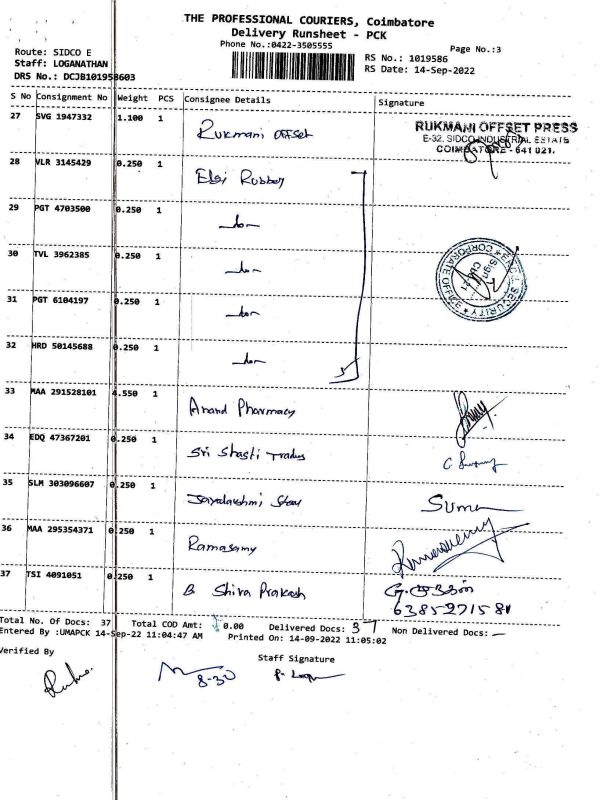 THE PROFESSIONAL COURIERS, Coimbatore
Delivery Runsheet - PCK
Phone No.:0422-3505555
Page No.:3
Route: SIDCO E
Staff: LOGANATHAN
DRS No.: DCJB101958603
RS No.: 1019586
RS Date: 14-Sep-2022
S No Consignment No Weight PCS Consignee Details Signature
27 SVG 1947332 1.100 1 Rukmani offset
RUKMANI OFFSET PRESS
E-32. SIDCO INDUSTRIAL ESTATE
COIMBATORE - 641 021.
28 VLR 3145429 0.250 1 Elgi Rubber
29 PGT 4703500 0.250 1 -do-
30 TVL 3962385 0.250 1 -do-
31 PGT 6104197 0.250 1 -do-
32 HRD 50145688 0.250 1 -do-
5
SECURITY * CORPORATE OFFICE
Sign
33 MAA 291528101 4.550 1 Anand Pharmacy
34 EDQ 47367201 0.250 1 Sri Shasti Traders
35 SLM 303096607 0.250 1 Jayalakshmi Steel
Suma
36 MAA 295354371 0.250 1 Ramasamy
Ramasamy
37 TSI 4091051 0.250 1 B Shiva Prakash
6385271581
Total No. Of Docs: 37 Total COD Amt: 0.00 Delivered Docs: 37 Non Delivered Docs: —
Entered By :UMAPCK 14-Sep-22 11:04:47 AM Printed On: 14-09-2022 11:05:02
Verified By
Staff Signature
8-30